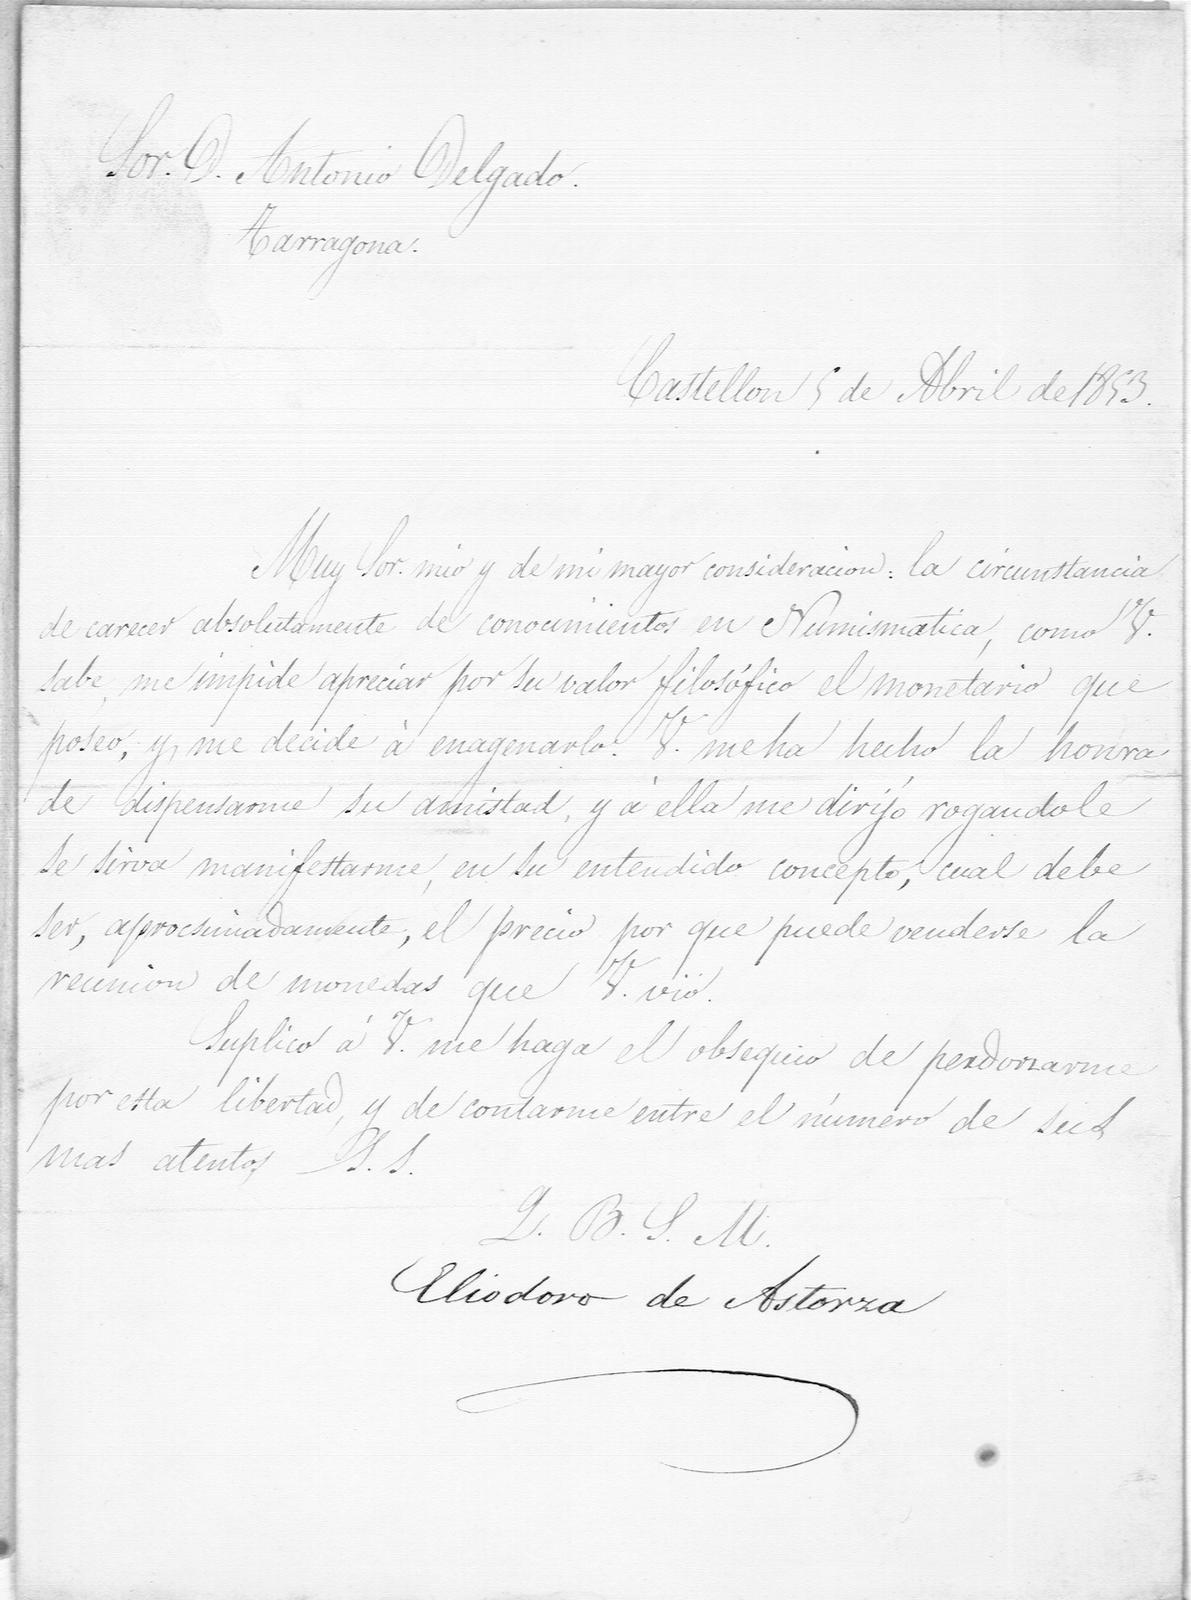 Sor. D. Antonio Delgado.
Tarragona.
Castellon 5 de Abril de 1853.
Muy Sor. mio y de mi mayor consideracion: la circunstancia
de carecer absolutamente de conocimientos en Numismática, como V.
sabe, me impide apreciar por su valor filosófico el monetario que
poseo, y me decide á enagenarlo. V. me ha hecho la honra
de dispensarme su amistad, y á ella me dirijo rogandole
se sirva manifestarme, en su entendido concepto, cual debe
ser, aprocsimadamente, el precio por que puede venderse la
reunion de monedas que V. vió.
Suplico á V. me haga el obsequio de perdonarme
por esta libertad, y de contarme entre el número de sus
mas atentos S. S.
Q. B. S. M.
Eliodoro de Astorza